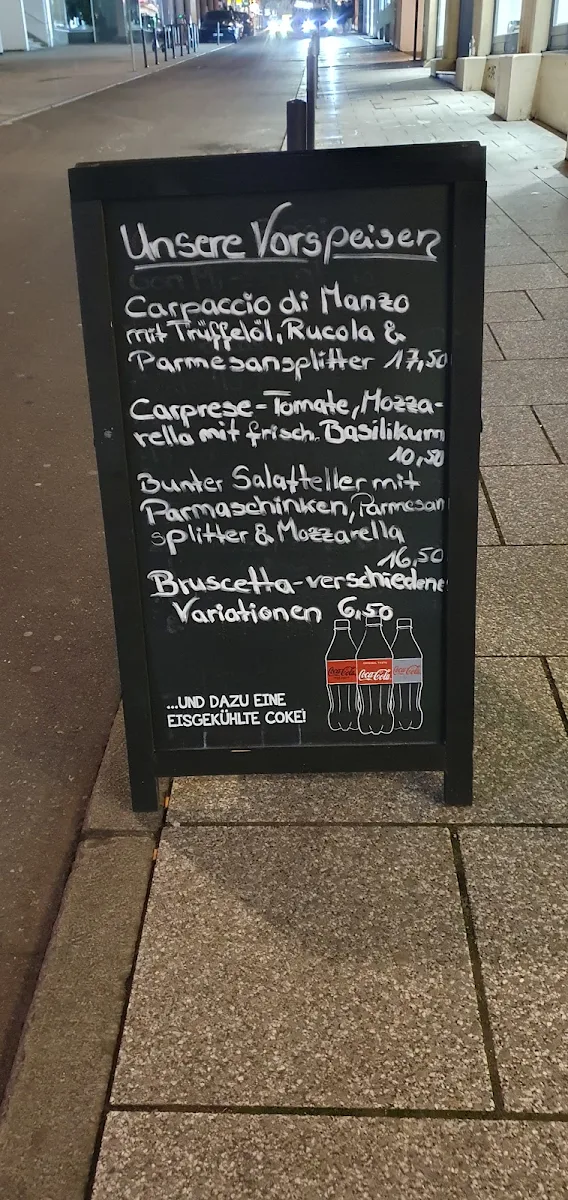 Unsere Vorspeisen
Carpaccio di Manzo
mit Trüffelöl, Rucola &
Parmesansplitter 17,50
Carprese-Tomate, Mozza-
rella mit frisch. Basilikum
10,50
Bunter Salatteller mit
Parmaschinken, Parmesan
splitter & Mozzarella
16,50
Bruscetta-verschiedene
Variationen 6,50
Coca-Cola Coca-Cola Coca-Cola
...UND DAZU EINE
EISGEKÜHLTE COKE!